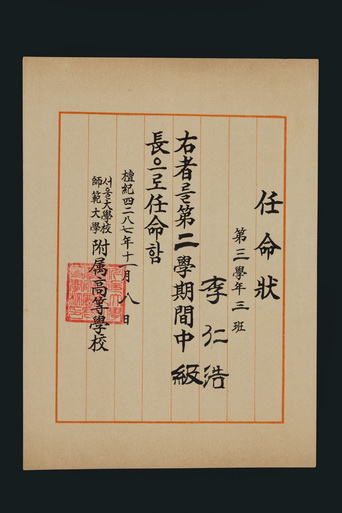 任命狀
第三學年三班
李仁浩
右者를第二學期間中級
長으로任命함
檀紀四二八七年十一月八日
서울大學校
師範大學
附属高等學校